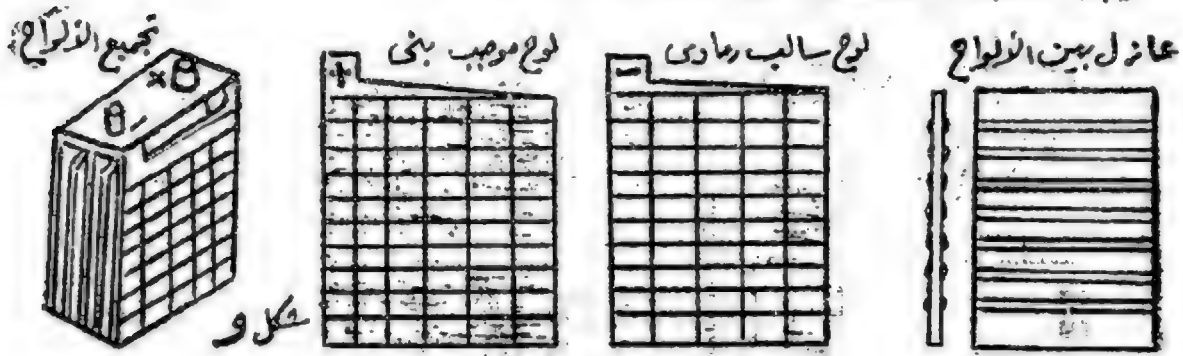 عازل بين الألواح
لوح سالب رمادى
-
لوح موجب بنى
+
تجميع الألواح
× -
شكل و